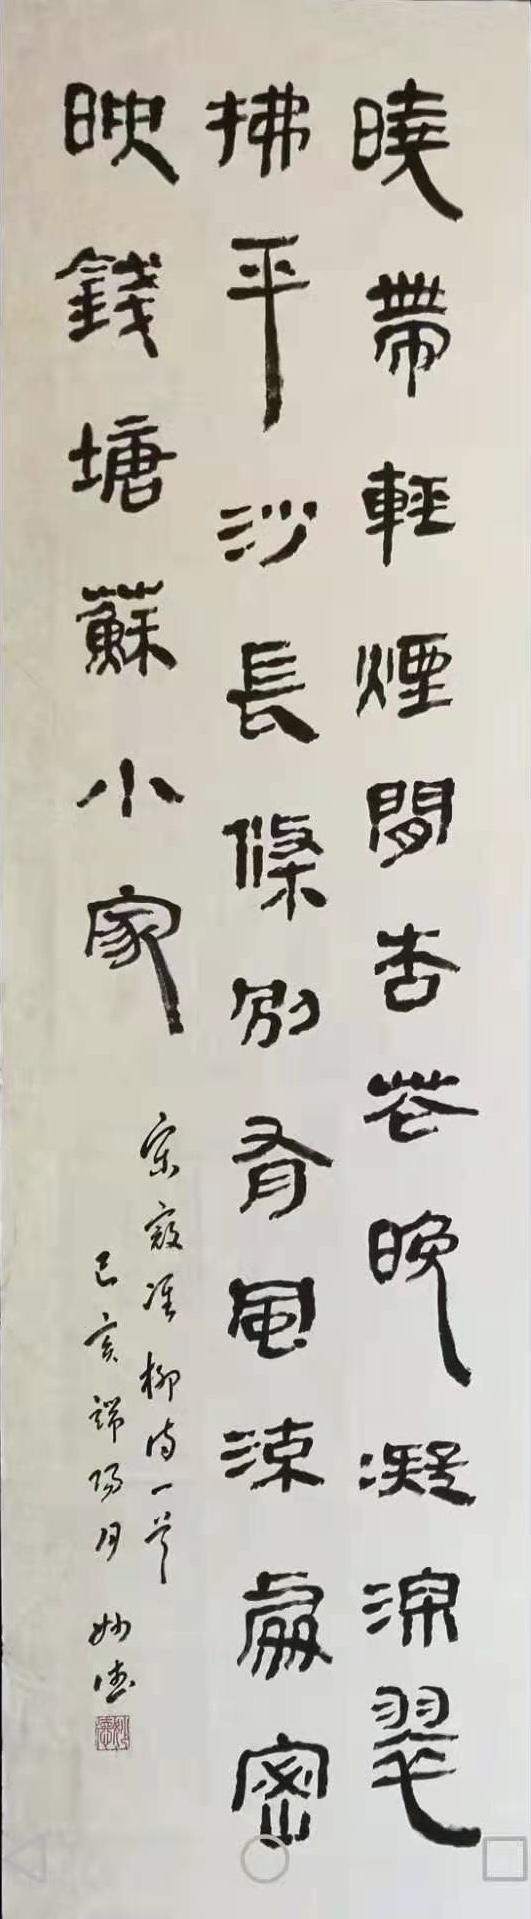 曉帶輕煙間杏花晚凝深翠
拂平沙長條別有風流處密
映錢塘蘇小家
宋寇准柳詩一首
己亥端陽月 妙德